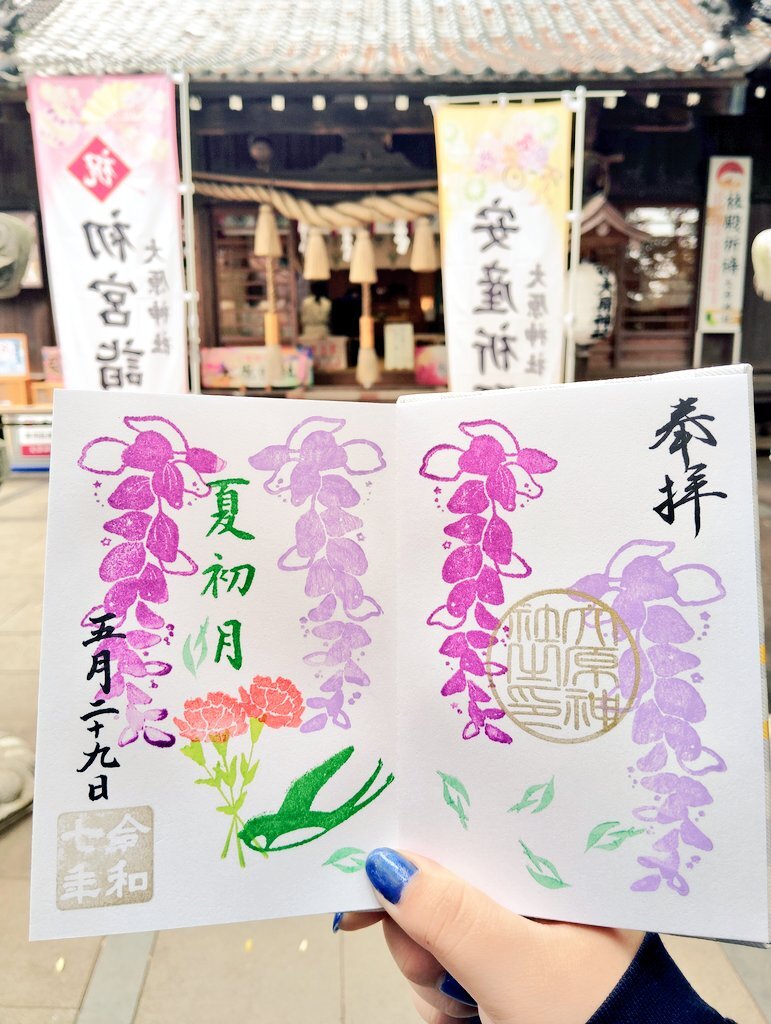 奉拝
大原神
社之印
夏初月
五月二十九日
令和
七年
祝
初宮詣
大原神社
安産祈
大原神社
大原神社